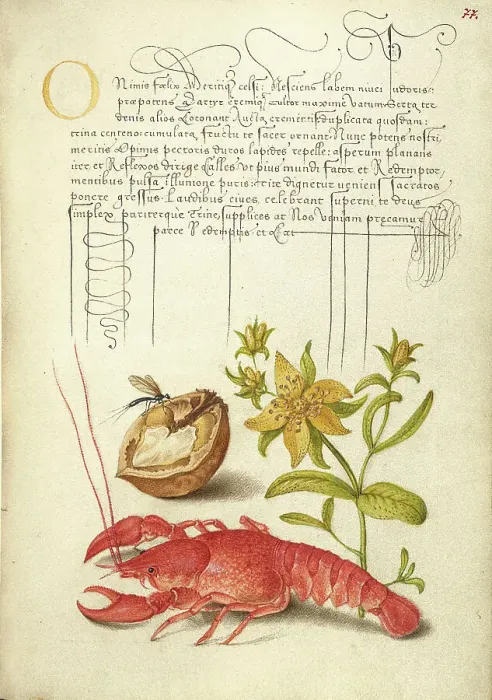 77.
O Nimis fœlix Meritiq; celsi: Nesciens labem niuei pudoris:
præpotens Martyr eremiq; Cultor maxime Vatum. Serta ter
denis alios Coronant Aucta crementis duplicata quosdam:
trina centeno cumulata, fructu te sacer ornant. Nunc potens nostri
meritis Opimis pectoris duros lapides repelle: asperum planans
iter, et Reflexos dirige Calles. Vt pius mundi Sator et Redemptor,
mentibus pulsa illuuione puris: rite dignetur ueniens Sacratos
ponere gressus. Laudibus ciues, celebrant superni te deus
simplex pariterque Trine, supplices at Nos Veniam precamur
parce Redemptis. et Cæt